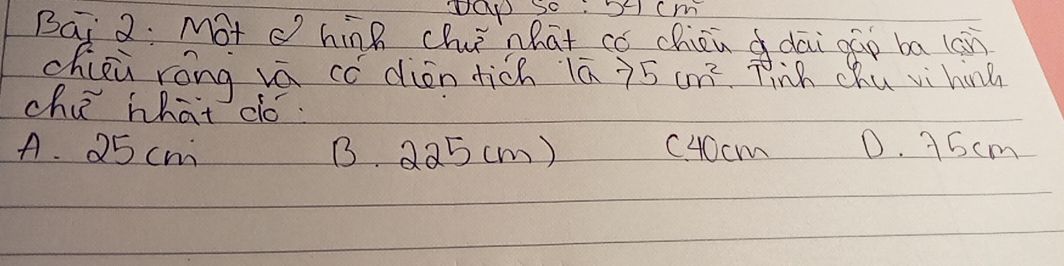 Đáp số : 54 cm
Bài 2 : Một hình chữ nhật có chiều dài gấp ba lần
chiều rộng và có diện tích là 75 cm². Tính chu vi hình
chữ nhật đó :
A. 25 cm B. 225 cm) C 40cm D. 75cm